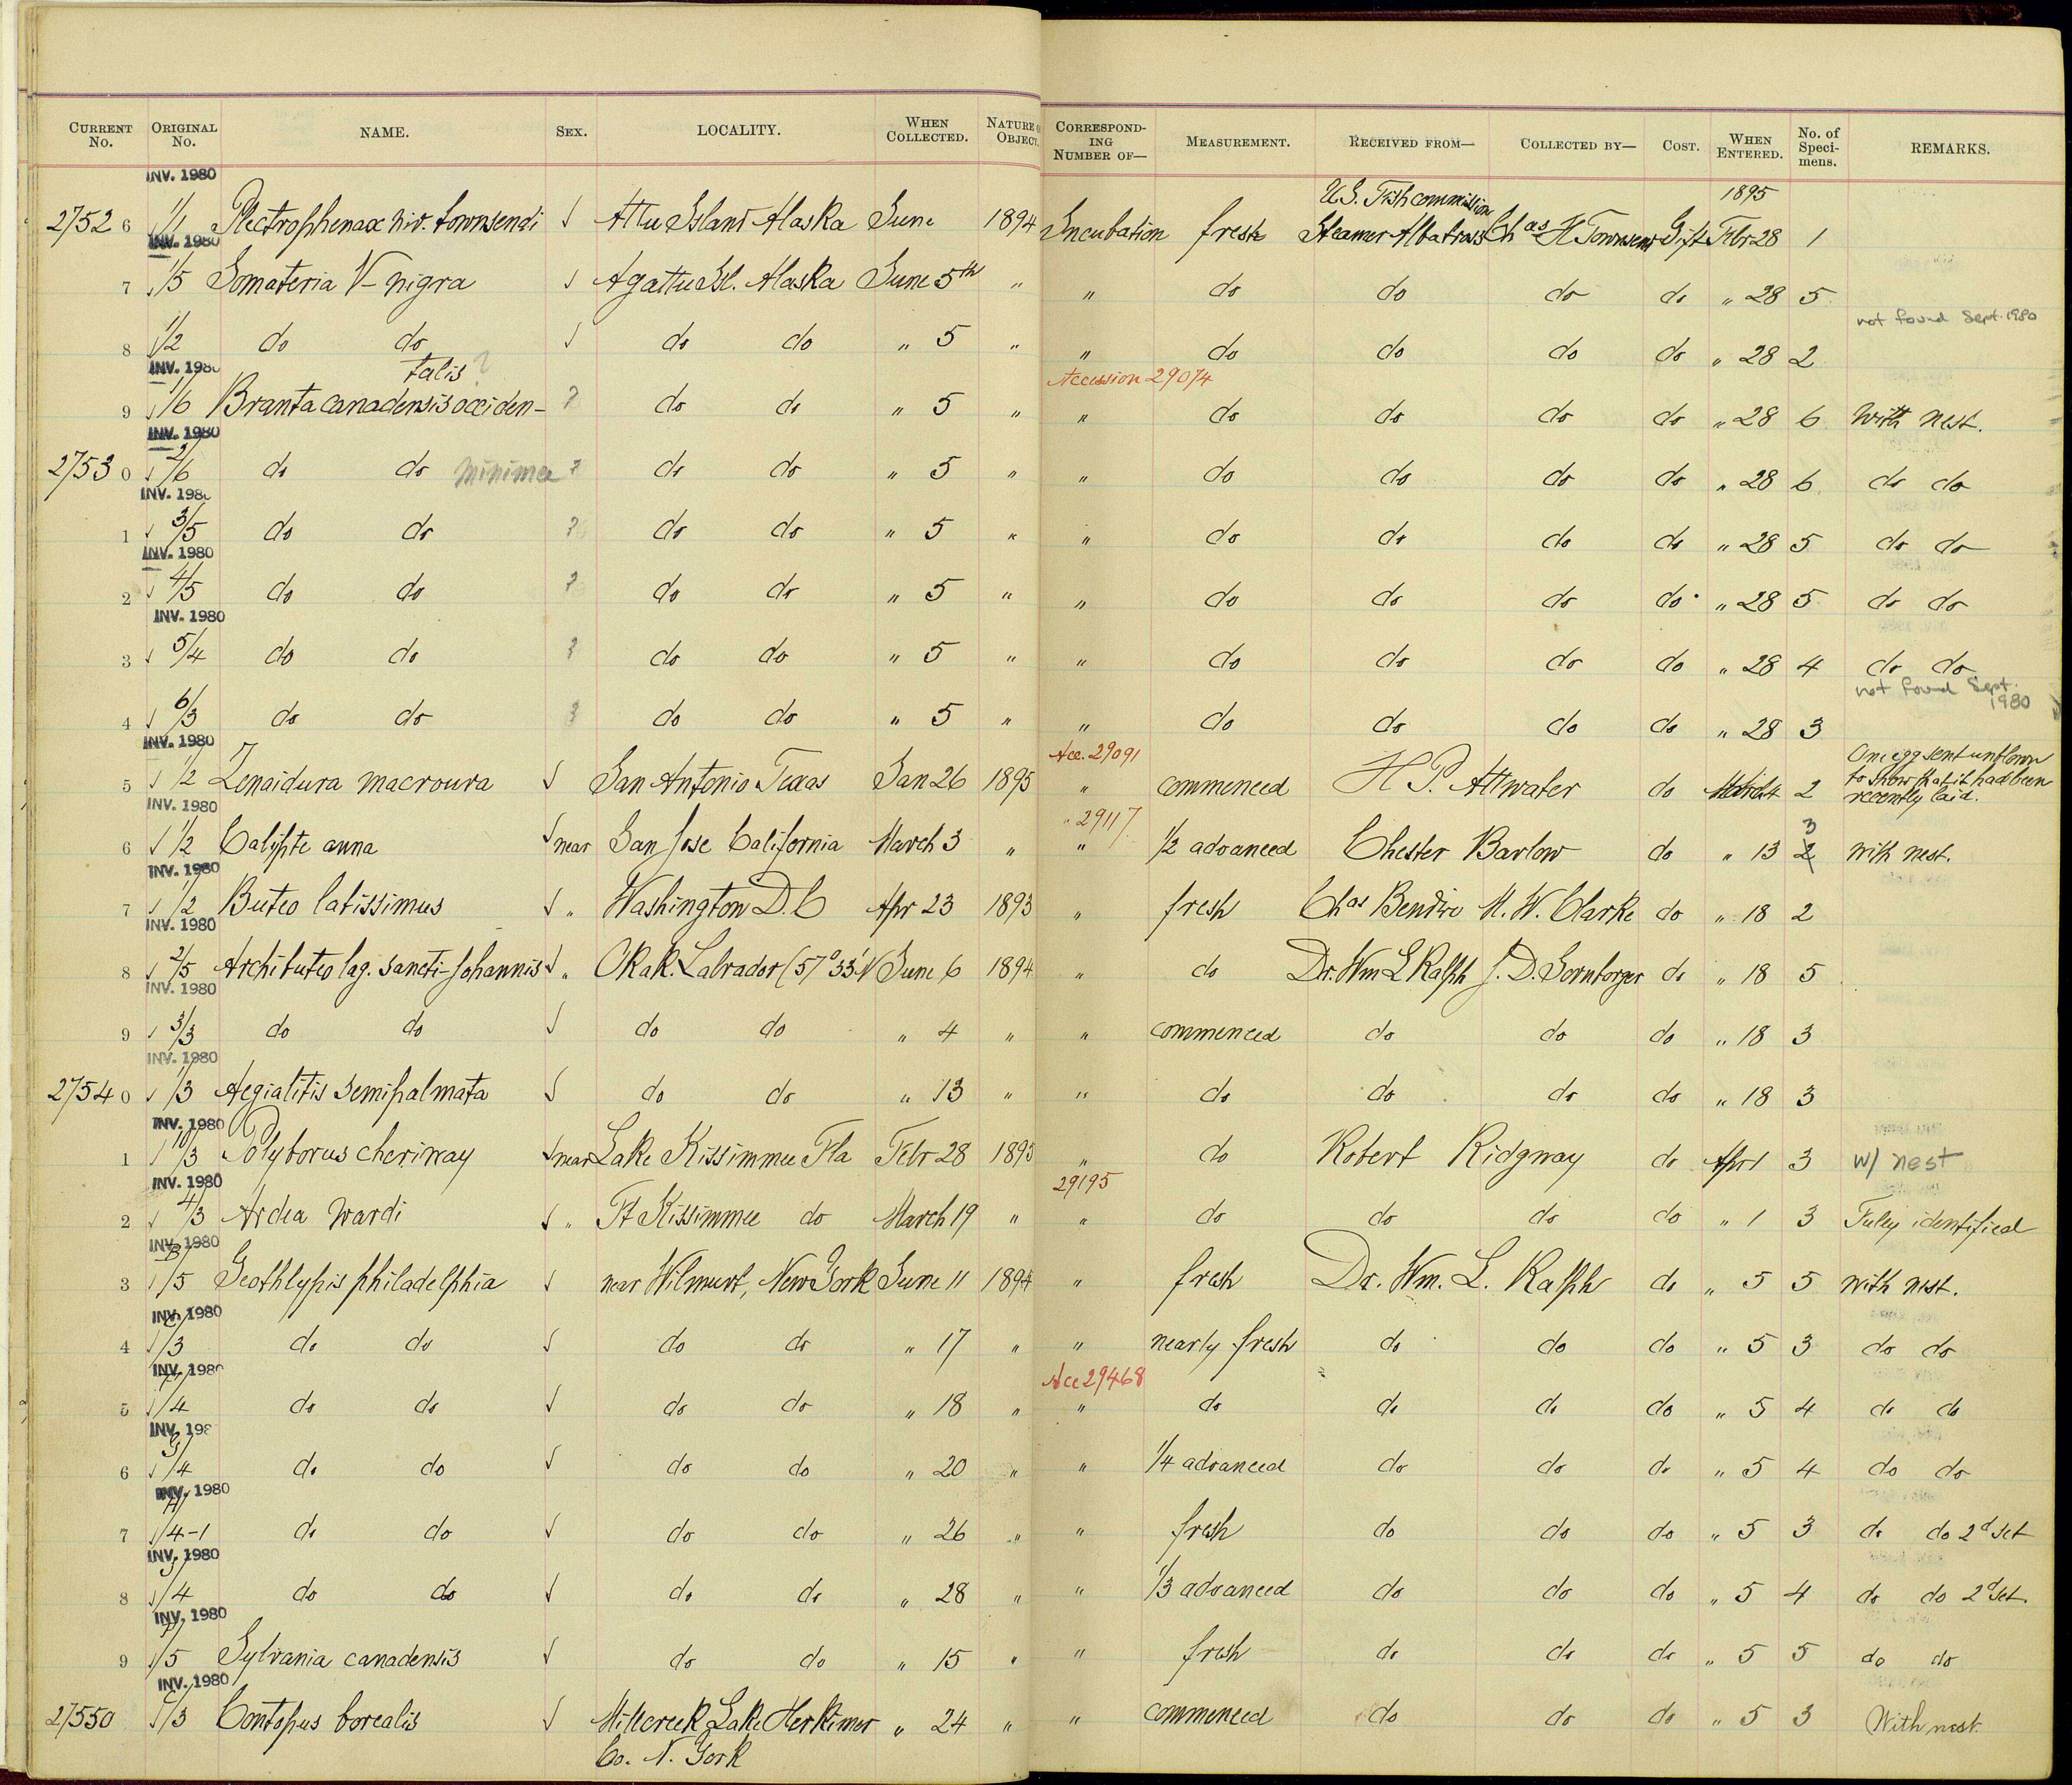 CURRENT No. ORIGINAL No. NAME. SEX. LOCALITY. WHEN COLLECTED. NATURE O OBJECT. CORRESPOND-ING NUMBER OF— MEASUREMENT. RECEIVED FROM— COLLECTED BY— COST. WHEN ENTERED. No. of Speci-mens. REMARKS.
INV. 1980
U.S. Fish commission 1895
27526 1/1 Plectrophenax niv. townsendi √ Attu Island Alaska June 1894 Incubation fresh Steamer Albatross Chas H Townsend Gift Febr 28 1
INV. 1980
7 √ 1/5 Somateria V-nigra √ Agattu Isl. Alaska June 5th " " do do do do " 28 5
not found Sept. 1980
8 1/2 do do √ do do " 5 " " do do do do " 28 2
INV. 1980 talis ? Accession 29074
9 √ 1/6 Branta canadensis occiden- ? do do " 5 " " do do do do " 28 6 With nest.
INV. 1980
27530 √ 2/6 do do minima ? do do " 5 " " do do do do " 28 6 do do
INV. 1980
1 √ 3/5 do do ? do do " 5 " " do do do do " 28 5 do do
INV. 1980
2 √ 4/5 do do ? do do " 5 " " do do do do " 28 5 do do
INV. 1980
3 √ 5/4 do do ? do do " 5 " " do do do do " 28 4 do do
not found Sept. 1980
4 √ 6/3 do do ? do do " 5 " " do do do do " 28 3
INV. 1980 Acc. 29091
5 √ 1/2 Zenaidura macroura √ San Antonio Texas Jan 26 1895 " commenced H P. Attwater do March 4 2 One egg sent unblown to show that it had been recently laid.
INV. 1980 " 29117 3
6 √ 1/2 Calypte anna √ near San Jose California March 3 " " 1/2 advanced Chester Barlow do " 13 2 With nest.
INV. 1980
7 √ 1/2 Buteo latissimus √ " Washington D.C Apr 23 1893 " fresh Chas Bendire M. W. Clarke do " 18 2
INV. 1980
8 √ 2/5 Archibuteo lag. sancti-Johannis √ " Okak. Labrador (57° 33' N June 6 1894 " do Dr. Wm L Ralph J. D. Sornborger do " 18 5
INV. 1980
9 √ 3/3 do do √ do do " 4 " " commenced do do do " 18 3
INV. 1980
27540 √ 1/3 Aegialitis semipalmata √ do do " 13 " " do do do do " 18 3
INV. 1980
1 √ 10/3 Polyborus cheriway √ near Lake Kissimmee Fla Febr 28 1895 " do Robert Ridgway do Apr 1 3 w/ nest
INV. 1980 29195
2 √ 4/3 Ardea wardi √ " Ft Kissimmee do March 19 " " do do do do " 1 3 Fuley identified
INV. 1980
3 √ /5 Geothlypis philadelphia √ near Wilmurt, New York June 11 1894 " fresh Dr. Wm. L. Ralph do " 5 5 With nest.
INV. 1980
4 √ /3 do do √ do do " 17 " " nearly fresh do do do " 5 3 do do
INV. 1980 Acc 29468
5 √ /4 do do √ do do " 18 " " do do do do " 5 4 do do
INV. 198
6 √ 3/4 do do √ do do " 20 " " 1/4 advanced do do do " 5 4 do do
INV. 1980
7 √ 4/4-1 do do √ do do " 26 " " fresh do do do " 5 3 do do 2d set
INV. 1980
8 √ 5/4 do do √ do do " 28 " " 1/3 advanced do do do " 5 4 do do 2d set.
INV. 1980
9 √ /5 Sylvania canadensis √ do do " 15 " " fresh do do do " 5 5 do do
INV. 1980
27550 √ /3 Contopus borealis √ Millcreek Lake Herkimer " 24 " " commenced do do do " 5 3 With nest.
Co. N. York